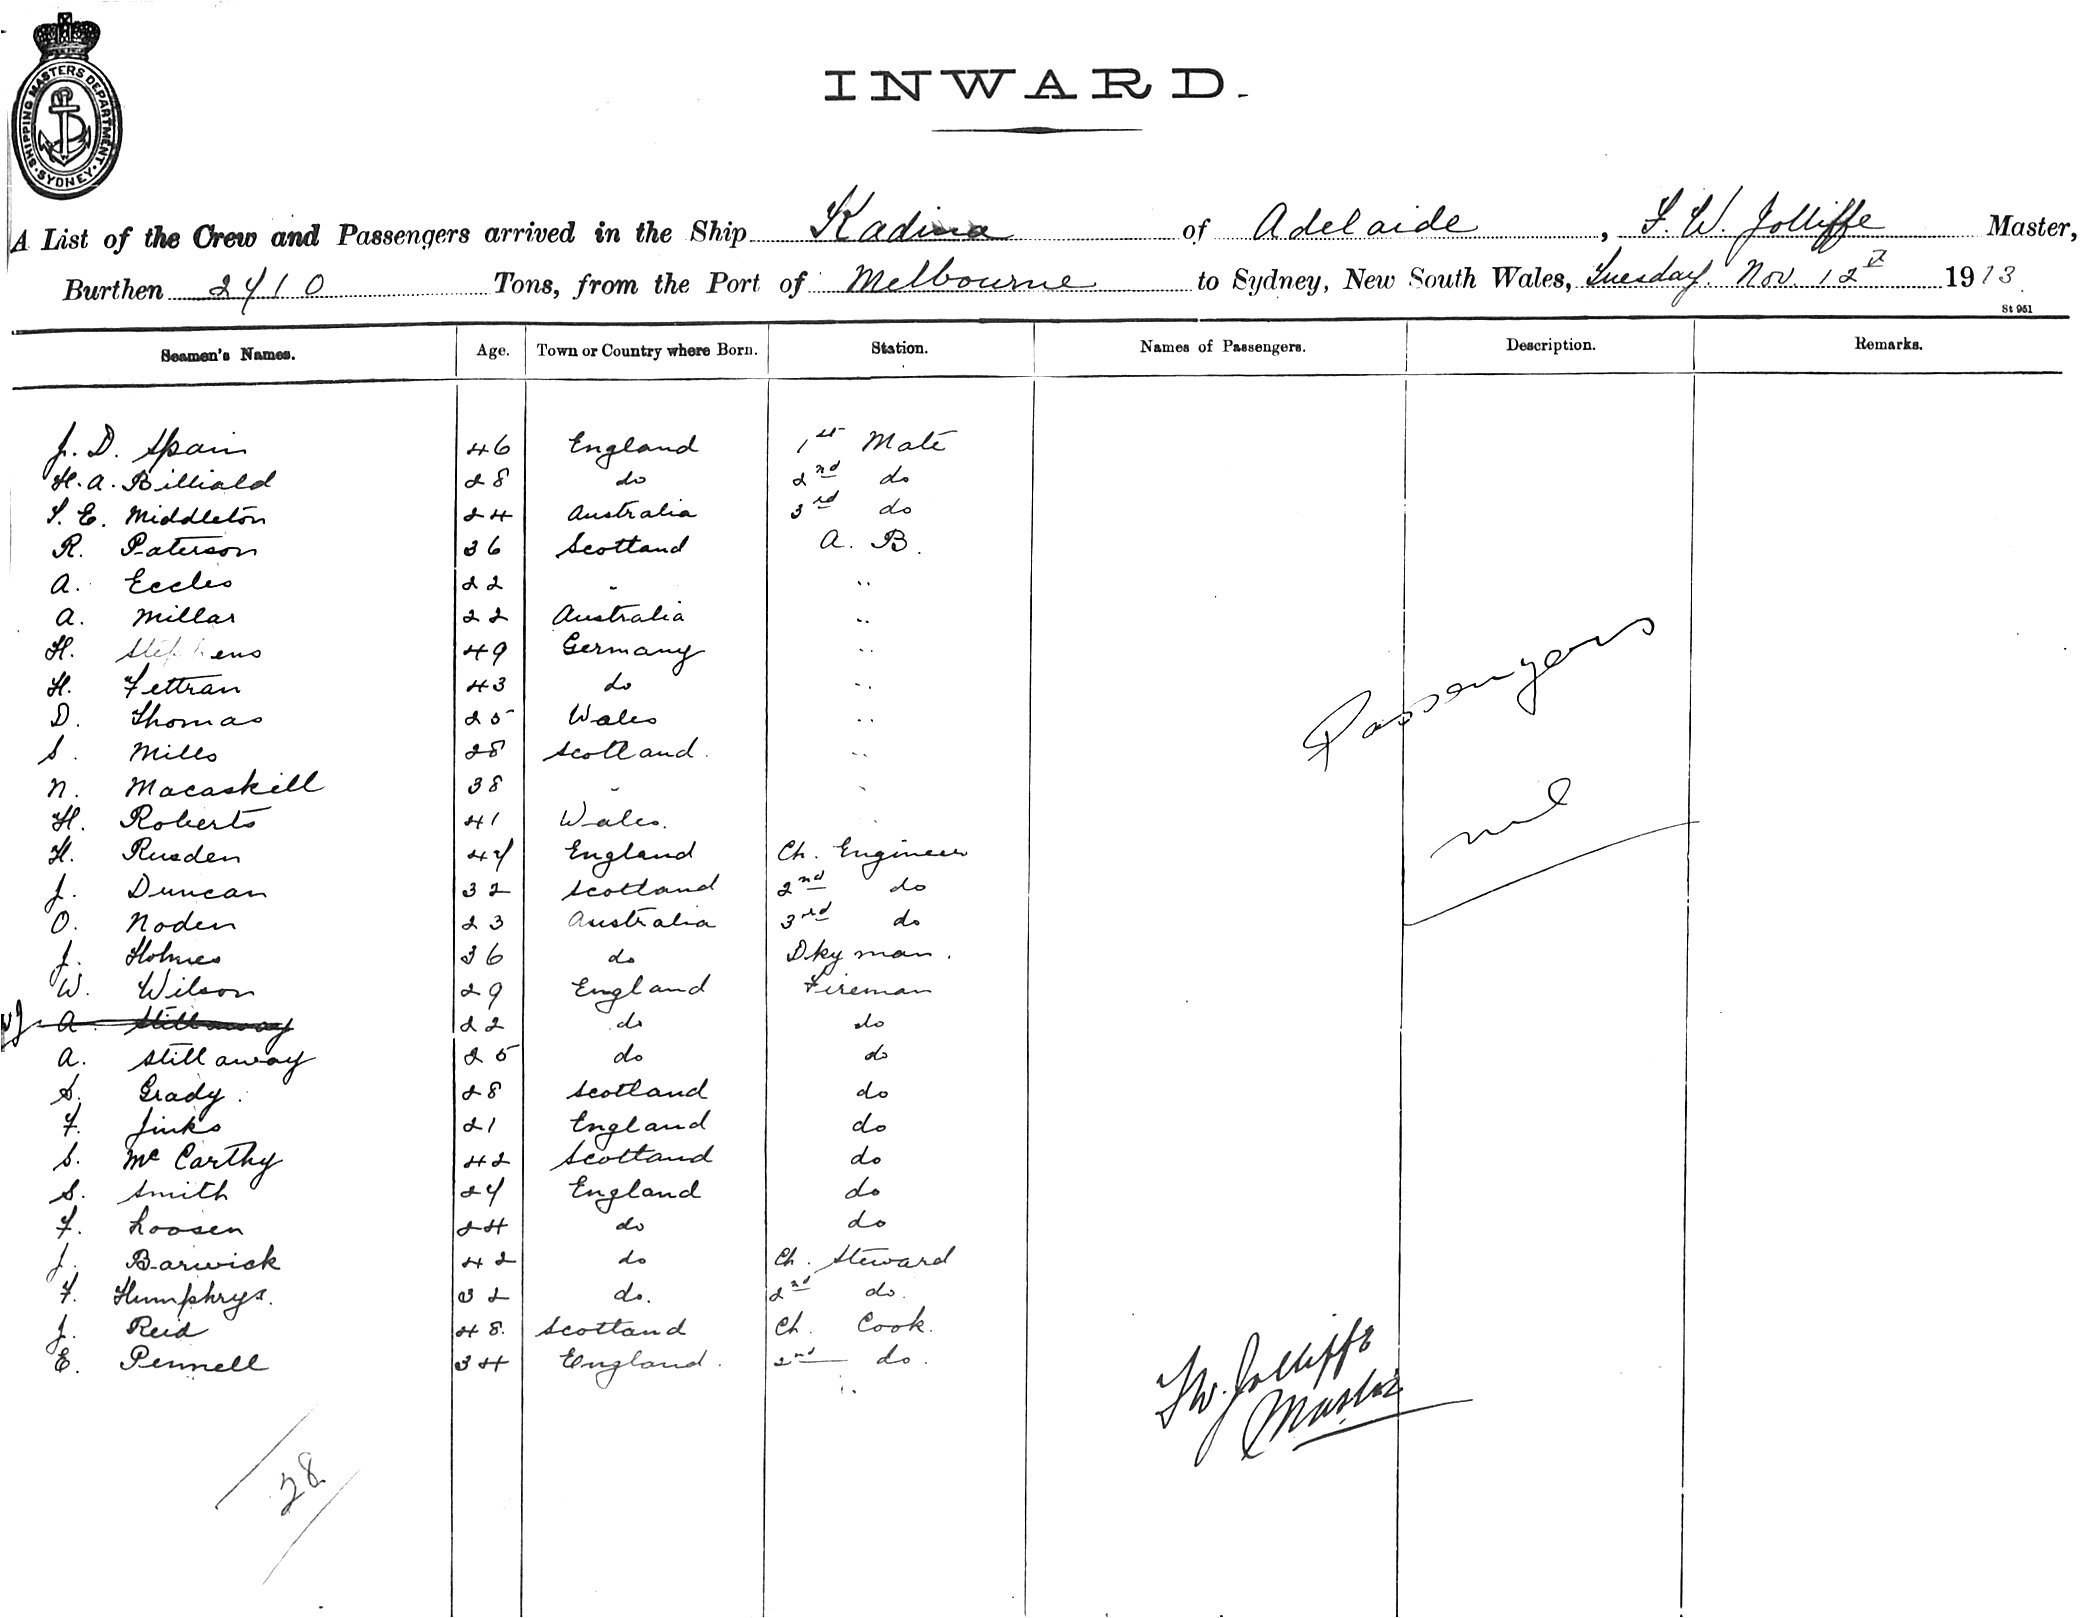 SHIPPING MASTERS DEPARTMENT. SYDNEY.
INWARD.
A List of the Crew and Passengers arrived in the Ship Kadina of Adelaide, F. W. Jolliffe Master,
Burthen 2410 Tons, from the Port of Melbourne to Sydney, New South Wales, Tuesday. Nov. 12th 1913.
St 951
Seamen's Names. Age. Town or Country where Born. Station. Names of Passengers. Description. Remarks.
J. D. Spain 46 England 1st Mate
H. A. Billiald 28 do 2nd do
F. E. Middleton 24 Australia 3rd do
R. Paterson 36 Scotland A. B.
A. Eccles 22 " "
A. Millar 22 Australia "
H. Stephens 49 Germany "
H. Fettran 43 do "
D. Thomas 25 Wales "
S. Mills 28 Scotland. "
N. Macaskill 38 " "
H. Roberts 41 Wales. "
H. Rusden 47 England Ch. Engineer
J. Duncan 32 Scotland 2nd do
O. Noden 23 Australia 3rd do
J. Holmes 36 do Dkyman.
W. Wilson 29 England Fireman
A. Stillaway 22 do do
A. Stillaway 25 do do
S. Grady. 28 Scotland do
F. Jinks 21 England do
S. McCarthy 42 Scotland do
S. Smith 27 England do
F. Loosen 24 do do
J. Barwick 42 do Ch. Steward
F. Humphrys. 32 do. 2nd do.
J. Reid 48. Scotland Ch. Cook.
E. Pennell 34 England. 2nd do.
Passengers
nil
FW. Jolliffe
Master
28